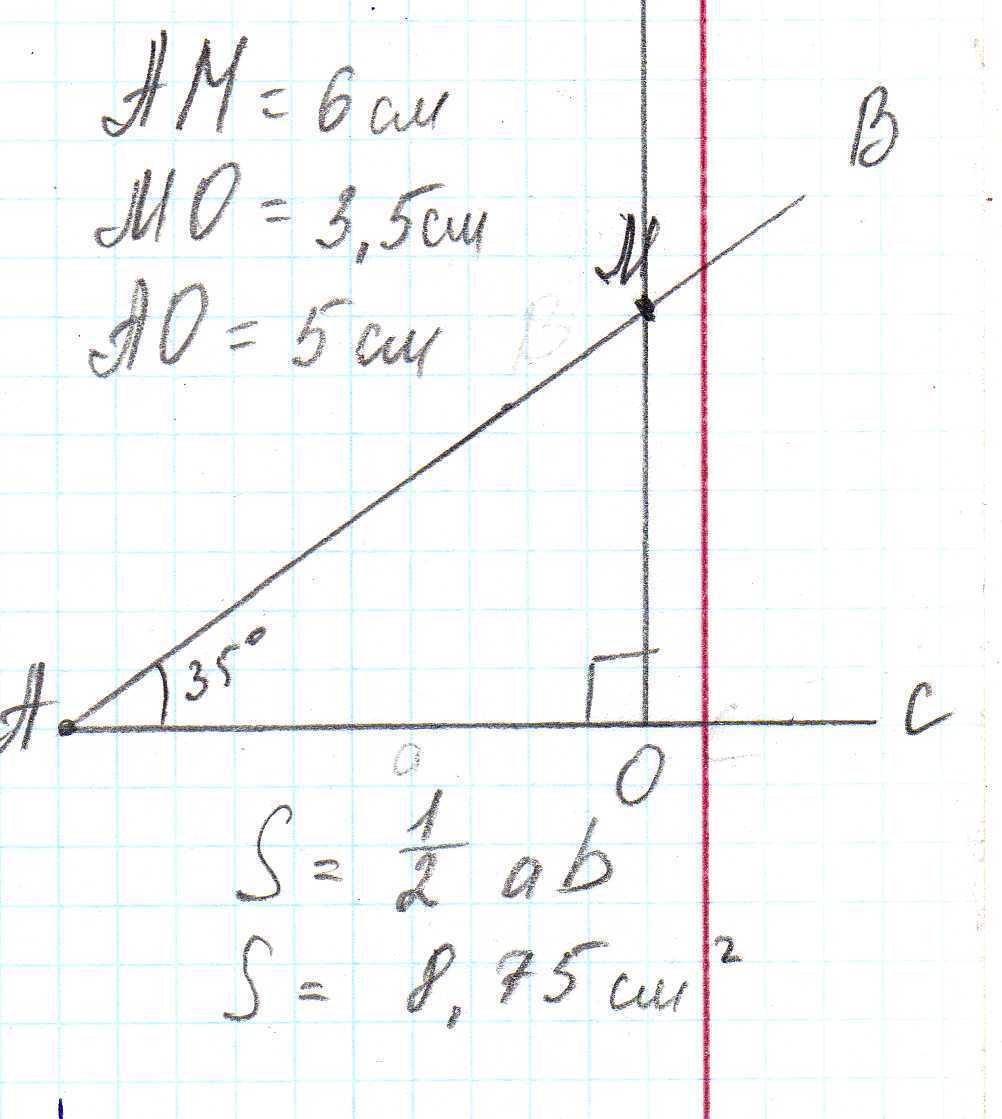 AM = 6 см
MO = 3,5 см
AO = 5 см
B
M
B
35°
A
C
C
O
O
S = 1/2 ab
S = 8,75 см²